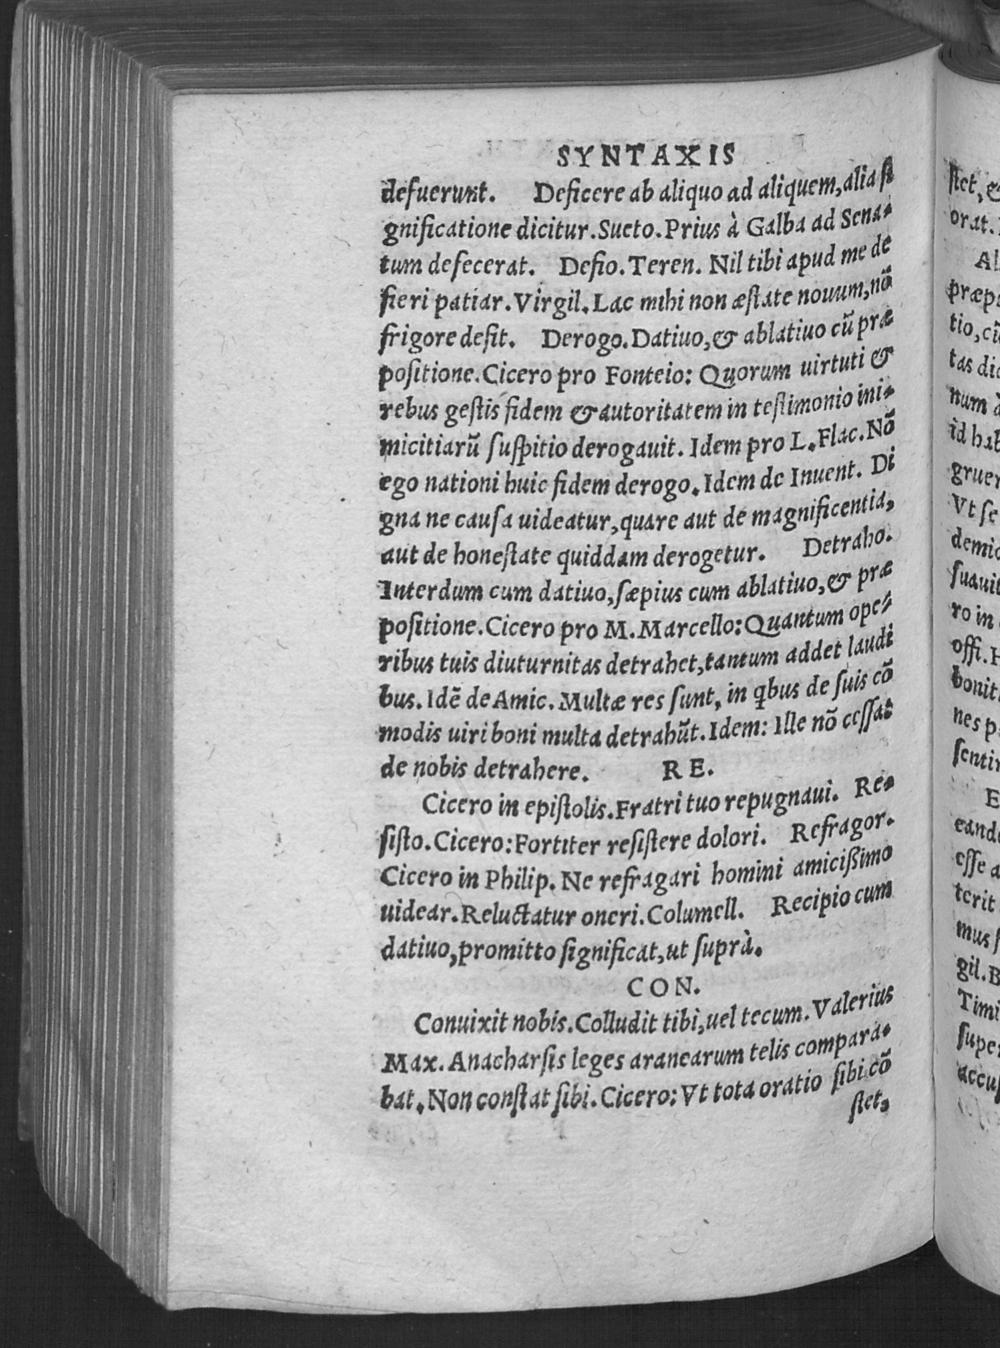 SYNTAXIS
defuerunt. Deficere ab aliquo ad aliquem, alia si
gnificatione dicitur. Sueto. Prius à Galba ad Sena-
tum defecerat. Defio. Teren. Nil tibi apud me de
fieri patiar. Virgil. Lac mihi non æstate nouum, nõ
frigore defit. Derogo. Datiuo, & ablatiuo cũ præ
positione. Cicero pro Fonteio: Quorum uirtuti &
rebus gestis fidem & autoritatem in testimonio ini-
micitiarũ suspitio derogauit. Idem pro L. Flac. Nõ
ego nationi huic fidem derogo. Idem de Inuent. Di
gna ne causa uideatur, quare aut de magnificentia,
aut de honestate quiddam derogetur. Detraho.
Interdum cum datiuo, sæpius cum ablatiuo, & præ
positione. Cicero pro M. Marcello: Quantum ope-
ribus tuis diuturnitas detrahet, tantum addet laudi
bus. Idẽ de Amic. Multæ res sunt, in qbus de suis cõ
modis uiri boni multa detrahũt. Idem: Ille nõ cessat
de nobis detrahere. RE.
Cicero in epistolis. Fratri tuo repugnaui. Re-
sisto. Cicero: Fortiter resistere dolori. Refragor.
Cicero in Philip. Ne refragari homini amicißimo
uidear. Reluctatur oneri. Columell. Recipio cum
datiuo, promitto significat, ut suprà.
CON.
Conuixit nobis. Colludit tibi, uel tecum. Valerius
Max. Anacharsis leges aranearum telis compara-
bat. Non constat sibi. Cicero: Vt tota oratio sibi cõ
stet,
stet, &
orat.
Al
præp
tio, cũ
tas di
num à
id hab
gruer
Vt se
demic
suauit
ro in
offi. H
bonit
nes p
sentir
E
eand
esse a
terit
mus s
gil. B
Timi
super
accus